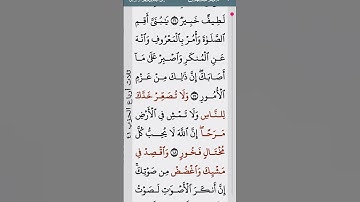 لَطِيفٌ خَبِيرٌ ١٦ يَٰبُنَيَّ أَقِمِ
ٱلصَّلَوٰةَ وَأۡمُرۡ بِٱلۡمَعۡرُوفِ وَٱنۡهَ
عَنِ ٱلۡمُنكَرِ وَٱصۡبِرۡ عَلَىٰ مَآ
أَصَابَكَۖ إِنَّ ذَٰلِكَ مِنۡ عَزۡمِ
ٱلۡأُمُورِ ١٧ وَلَا تُصَعِّرۡ خَدَّكَ
لِلنَّاسِ وَلَا تَمۡشِ فِي ٱلۡأَرۡضِ
مَرَحًاۖ إِنَّ ٱللَّهَ لَا يُحِبُّ كُلَّ
مُخۡتَالٖ فَخُورٖ ١٨ وَٱقۡصِدۡ فِي
مَشۡيِكَ وَٱغۡضُضۡ مِن صَوۡتِكَۚ
إِنَّ أَنكَرَ ٱلۡأَصۡوَٰتِ لَصَوۡتُ
ثلاث أرباع الحزب ٤١